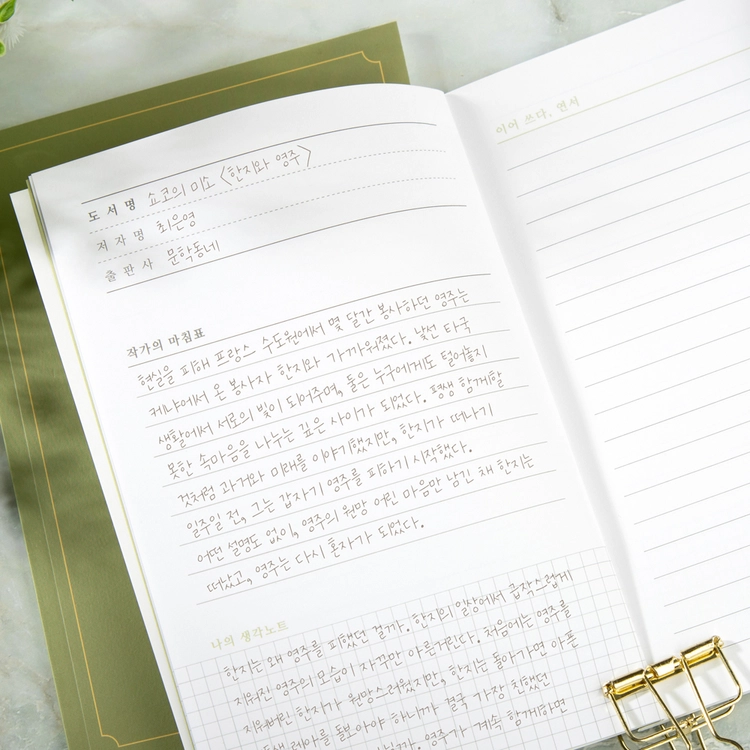 도서명 쇼코의 미소 〈한지와 영주〉
저자명 최은영
출판사 문학동네
작가의 마침표
현실을 피해 프랑스 수도원에서 몇 달간 봉사하던 영주는
케냐에서 온 봉사자 한지와 가까워졌다. 낯선 타국
생활에서 서로의 빛이 되어주며, 둘은 누구에게도 털어놓지
못한 속마음을 나누는 깊은 사이가 되었다. 평생 함께할
것처럼 과거와 미래를 이야기했지만, 한지가 떠나기
일주일 전, 그는 갑자기 영주를 피하기 시작했다.
어떤 설명도 없이, 영주의 원망 어린 마음만 남긴 채 한지는
떠났고, 영주는 다시 혼자가 되었다.
나의 생각노트
한지는 왜 영주를 피했던 걸까. 한지의 일상에서 급작스럽게
지워진 영주의 모습이 자꾸만 아른거린다. 처음에는 영주를
지워버린 한지가 원망스러웠지만, 한지는 돌아가면 아픈
동생 레아를 돌보아야 하니까 결국 가장 친했던
영주가 계속 함께하면
이어 쓰다, 연서